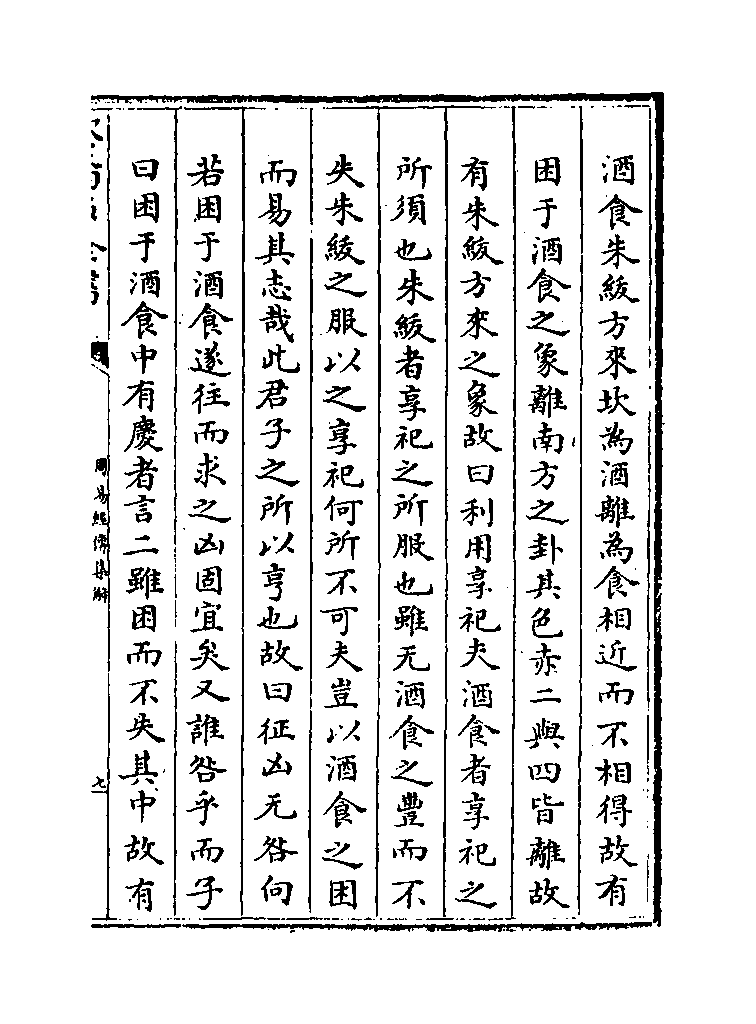 酒食朱紱方來坎為酒離為食相近而不相得故有
困于酒食之象離南方之卦其色赤二與四皆離故
有朱紱方來之象故曰利用享祀夫酒食者享祀之
所須也朱紱者享祀之所服也雖无酒食之豐而不
失朱紱之服以之享祀何所不可夫豈以酒食之困
而易其志哉此君子之所以亨也故曰征凶无咎向
若困于酒食遂往而求之凶固宜矣又誰咎乎而子
曰困于酒食中有慶者言二雖困而不失其中故有
周易經傳集解